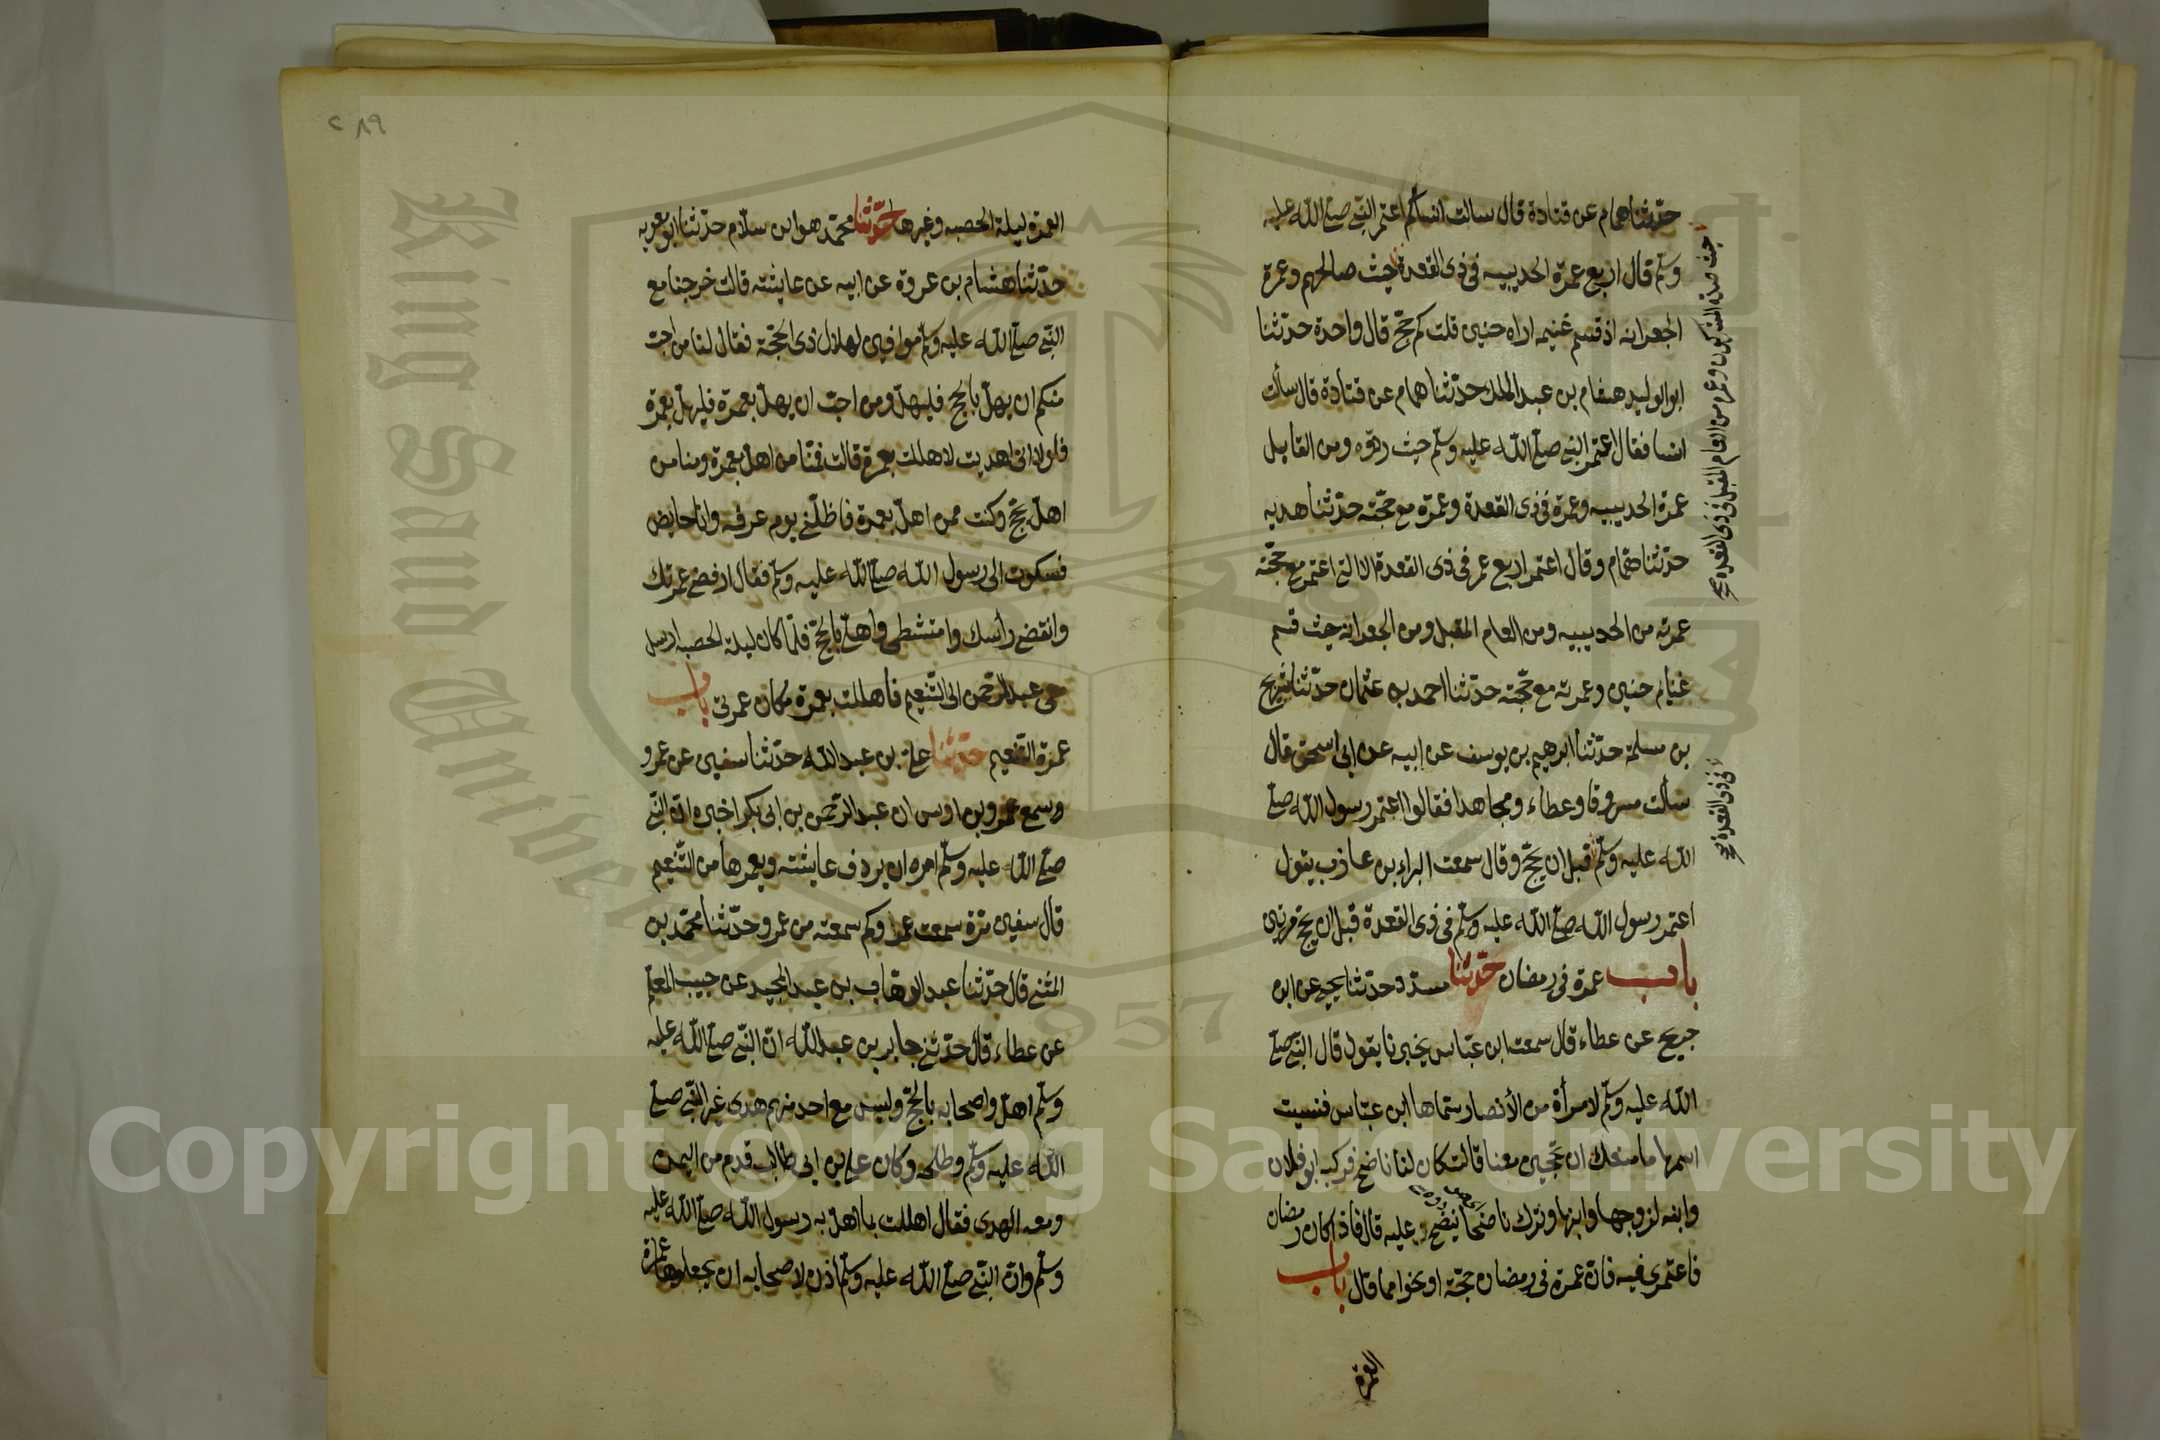 حدّثنا همام عن قتادة قال سالت انسا كم اعتمر النبي صلى الله عليه
وسلم قال اربع عمرة الحديبيه فى ذى القعدة حيث صالحهم وعمرة
الجعرانه اذ قسم غنيمه اراه حنين قلت كم حج قال واحدة حدّثنا
ابو الوليد هشام بن عبد الملك حدّثنا همام عن قتادة قال سألت
انسا فقال اعتمر النبي صلى الله عليه وسلم حيث ردّوه ومن القابل
عمرة الحديبيه وعمرة فى ذى القعدة وعمرة مع حجّته حدّثنا هدبه
حدّثنا همّام وقال اعتمر اربع عمر فى ذى القعدة الا التي اعتمر مع حجّته
عمرته من الحديبيه ومن العام المقبل ومن الجعرانه حيث قسم
غنايم حنين وعمرته مع حجّته حدّثنا احمد بن عثمان حدّثنا شريح
بن مسلمة حدّثنا ابرهيم بن يوسف عن ابيه عن ابى اسحق قال
سألت مسروقا وعطاء ومجاهدا فقالوا اعتمر رسول الله صلى
الله عليه وسلّم قبل ان يحجّ وقال سمعت البراء بن عاذب يقول
اعتمر رسول الله صلى الله عليه وسلّم فى ذى القعدة قبل ان يحج مرتين
باب عمرة فى رمضان حدّثنا مسدّد حدّثنا يحيى عن ابن
جريج عن عطاء قال سمعت ابن عبّاس يخبرنا يقول قال النبي صلى
الله عليه وسلّم لامرأة من الأنصار سمّاها ابن عبّاس فنسيت
اسمها ما منعك ان تحجين معنا قالت كان لنا ناضح فركبه ابو فلان
وابنه لزوجها وابنها وترك ناضحا ننضح عليه قال فاذا كان رمضان
فاعتمرى فيه فانّ عمرة فى رمضان حجّة او نحوا مما قال باب
العمرة
حيث صده المشركون وعمرة من العام المقبل فى ذى القعدة صح
فى ذى القعدة صح
٢٨٩
العمرة ليلة الحصبه وغيرها حدّثنا محمّد هو ابن سلّام حدّثنا ابو معويه
حدّثنا هشام بن عروة عن ابيه عن عايشته قالت خرجنا مع
النبي صلى الله عليه وسلّم موافين لهلال ذى الحجّة فقال لنا من احبّ
منكم ان يهلّ بالحجّ فليهلّ ومن احبّ ان يهلّ بعمرة فليهلّ بعمرة
فلولا انى اهديت لاهللت بعمرة قالت فمنّا من اهلّ بعمرة ومنا من
اهلّ بحجّ وكنت ممن اهلّ بعمرة فاظلّني يوم عرفه وانا حايض
فشكوت الى رسول الله صلى الله عليه وسلّم فقال ارفضى عمرتك
وانقضى رأسك وامتشطى وأهلّى بالحجّ فلمّا كان ليلة الحصبه ارسل
معى عبد الرحمن الى التّنعيم فاهللت بعمرة مكان عمرتى باب
عمرة التنعيم حدّثنا علىّ بن عبد الله حدّثنا سفين عن عمرو
وسمع عمرو بن اوس ان عبد الرّحمن بن ابى بكر اخبره انّ النّبي
صلى الله عليه وسلّم امره ان يردف عايشته ويعمرها من التّنعيم
قال سفين مرّة سمعت عمرا وكم سمعته من عمرو حدّثنا محمّد بن
المثنى قال حدّثنا عبد الوهّاب بن عبد المجيد عن حبيب المعلّم
عن عطاء قال حدّثني جابر بن عبد الله انّ النّبي صلى الله عليه
وسلّم اهلّ واصحابه بالحجّ وليس مع احد منهم هدى غير النّبي صلى
الله عليه وسلّم وطلحه وكان علىّ بن ابى طالب قدم من اليمن
ومعه الهدى فقال اهللت بما اهلّ به رسول الله صلى الله عليه
وسلّم وانّ النّبي صلى الله عليه وسلّم اذن لاصحابه ان يجعلوها عمرة
King Saud University
1957
Copyright © King Saud University